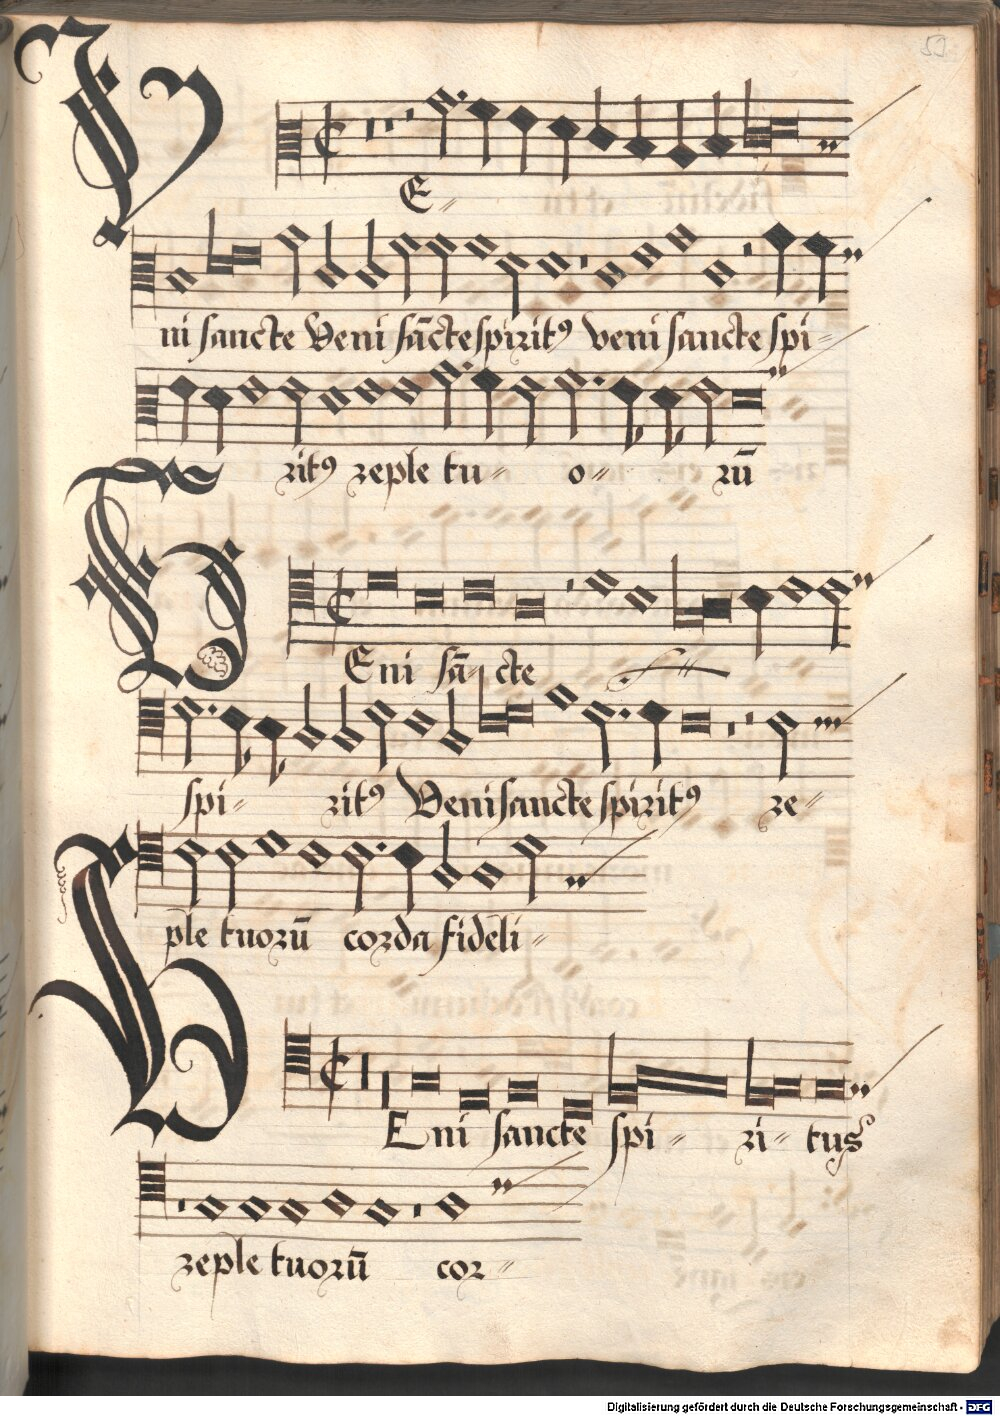 59
VE-
ni sancte Veni sāctespiritꝰ veni sancte spi-
ritꝰ reple tu- o- rū
VEni sā- cte
spi- ritꝰ Veni sancte spiritꝰ re-
ple tuorū corda fideli-
VEni sancte spi- ri- tus
reple tuorū cor-
Digitalisierung gefördert durch die Deutsche Forschungsgemeinschaft - DFG